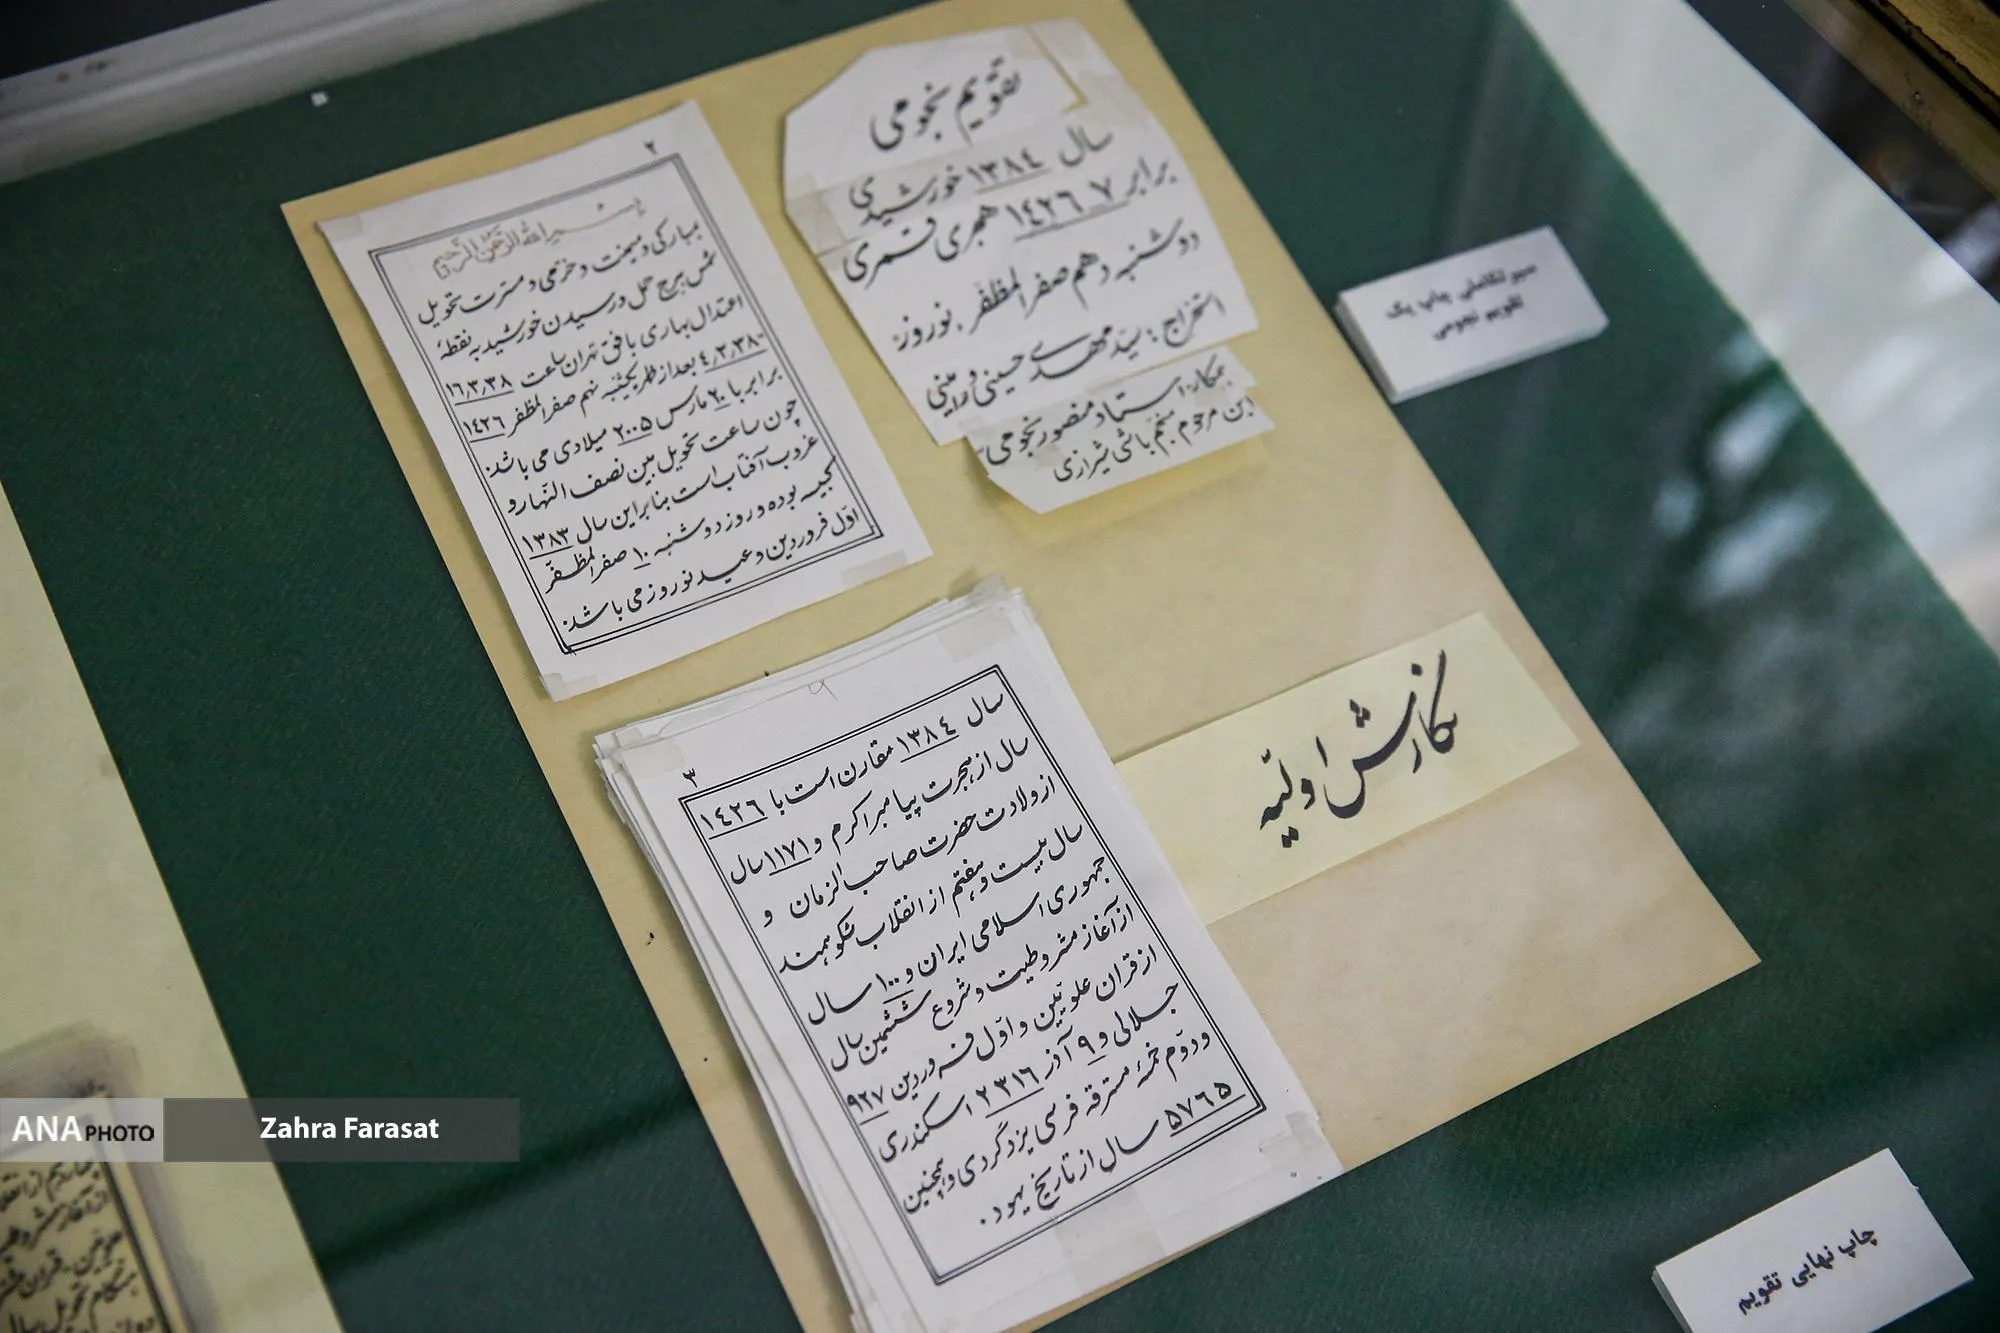 تقویم نجومی
سال ۱۳۸۴ خورشیدی
برابر ۷ ۱۴۲۶ هجری قمری
دوشنبه دهم صفر المظفر. نوروز
استخراج: سیّد مهدی حسینی ورامینی
بهمکار: استاد منصور نجومی
ابن مرحوم منجّم باشی شیرازی
۲
بسم الله الرّحمن الرّحیم
بمبارکی و میمنت و خرّمی و مسرّت تحویل
شمس ببرج حمل و رسیدن خورشید به نقطهٔ
اعتدال بهاری بافق تهران ساعت ۱۶٫۳٫۳۸
-۴٫۳٫۳۸ بعد از ظهر یکشنبه نهم صفر المظفر ۱۴۲۶
برابر با ۲۰ مارس ۲۰۰۵ میلادی می باشد.
چون ساعت تحویل بین نصف النّهار و
غروب آفتاب است بنابراین سال ۱۳۸۳
کبیسه بوده و روز دوشنبه ۱۰ صفر المظفّر
اوّل فروردین و عید نوروز می باشد.
۹
۳
سال ۱۳۸۴ مقارن است با ۱۴۲۶
سال از هجرت پیامبر اکرم و ۱۱۷۱ سال
از ولادت حضرت صاحب الزمان و
سال بیست و هفتم از انقلاب شکوهمند
جمهوری اسلامی ایران و ۱۰۰ سال
از آغاز مشروطیت و شروع ششمین سال
از قران علویّین و اوّل فروردین ۹۲۷
جلالی و ۹ آذر ۲۳۱۶ اسکندری
و دوّم خمسهٔ مسترقه فرسی یزدگردی و همچنین
۵۷۶۵ سال از تاریخ یهود.
نگارش اولیّه
سیر تکاملی چاپ یک
تقویم نجومی
چاپ نهایی تقویم
ANA PHOTO
Zahra Farasat